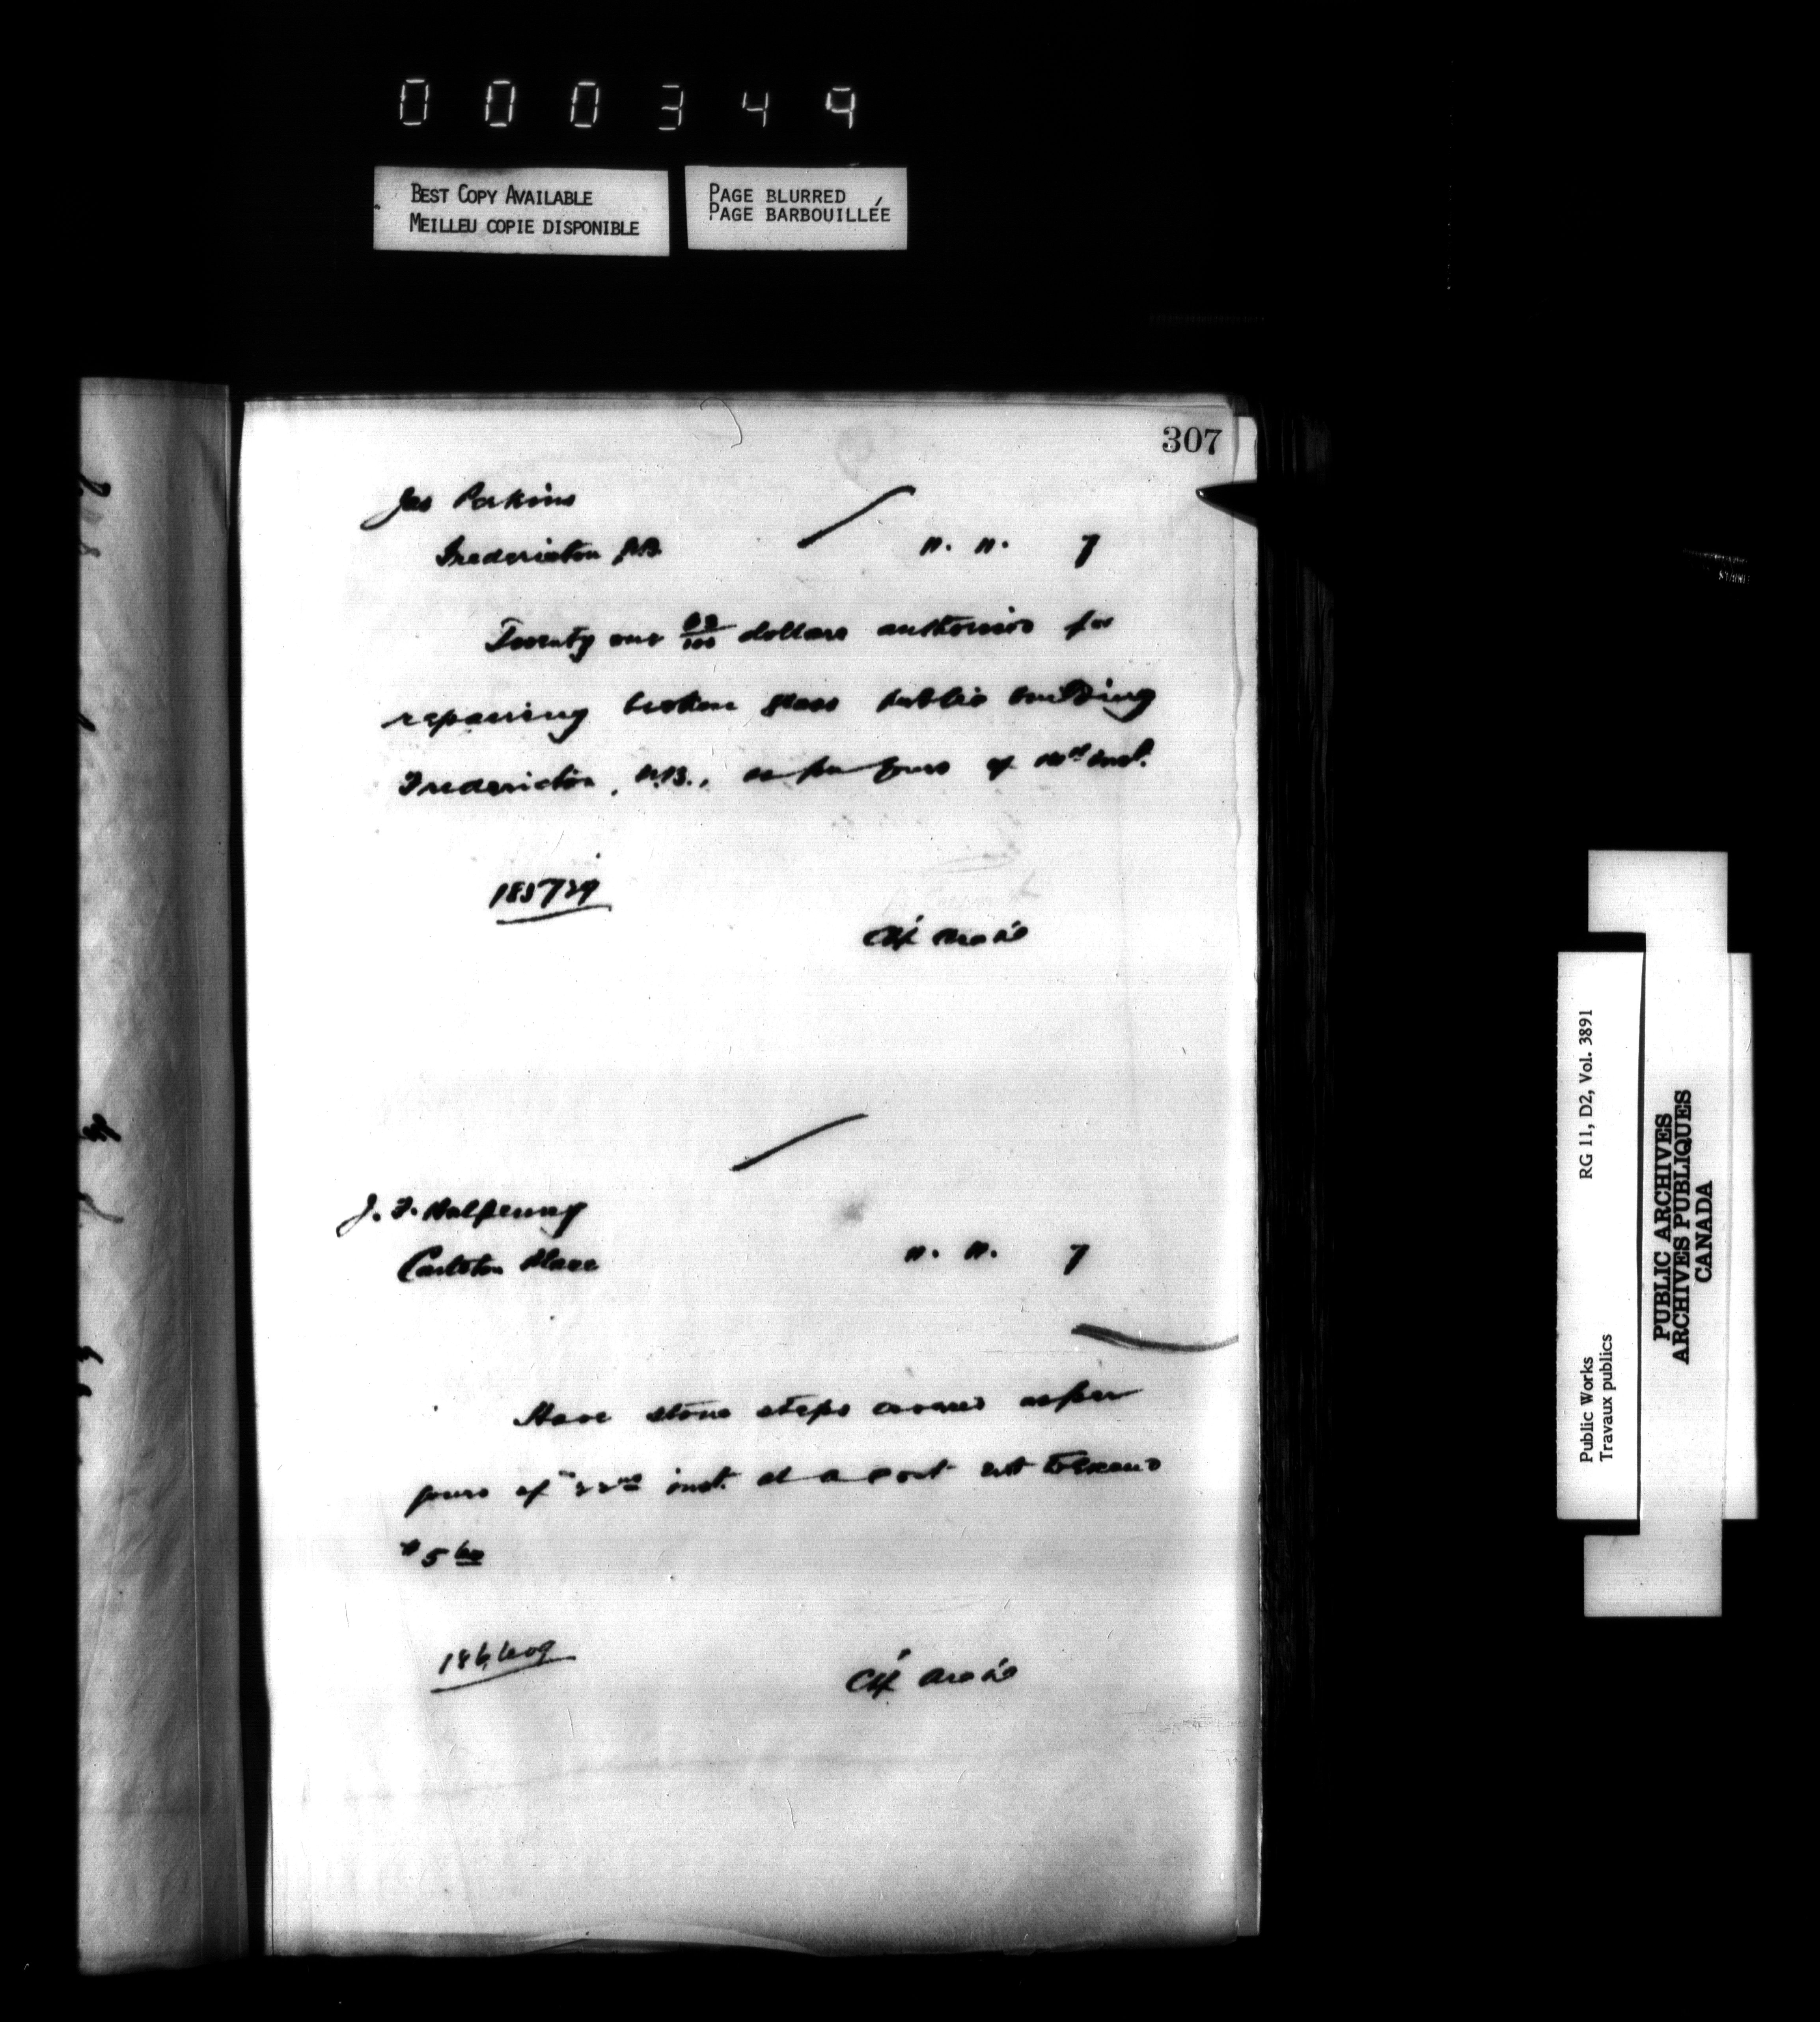 000349
BEST COPY AVAILABLE
MEILLEU COPIE DISPONIBLE
PAGE BLURRED
PAGE BARBOUILLÉE
307
Jas Perkins
Fredericton N.B.
n. n. 7
Twenty one /100 dollars authorized for
repairing broken glass public building
Fredericton, N.B., as per yours of inst.
185729
J. F. Halpenny
Carleton Place
n. n. 7
Have stone steps as per
yours of 22nd inst. at a cost not to exceed
$5 60
186,609
Public Works
Travaux publics
RG 11, D2, Vol. 3891
PUBLIC ARCHIVES
ARCHIVES PUBLIQUES
CANADA